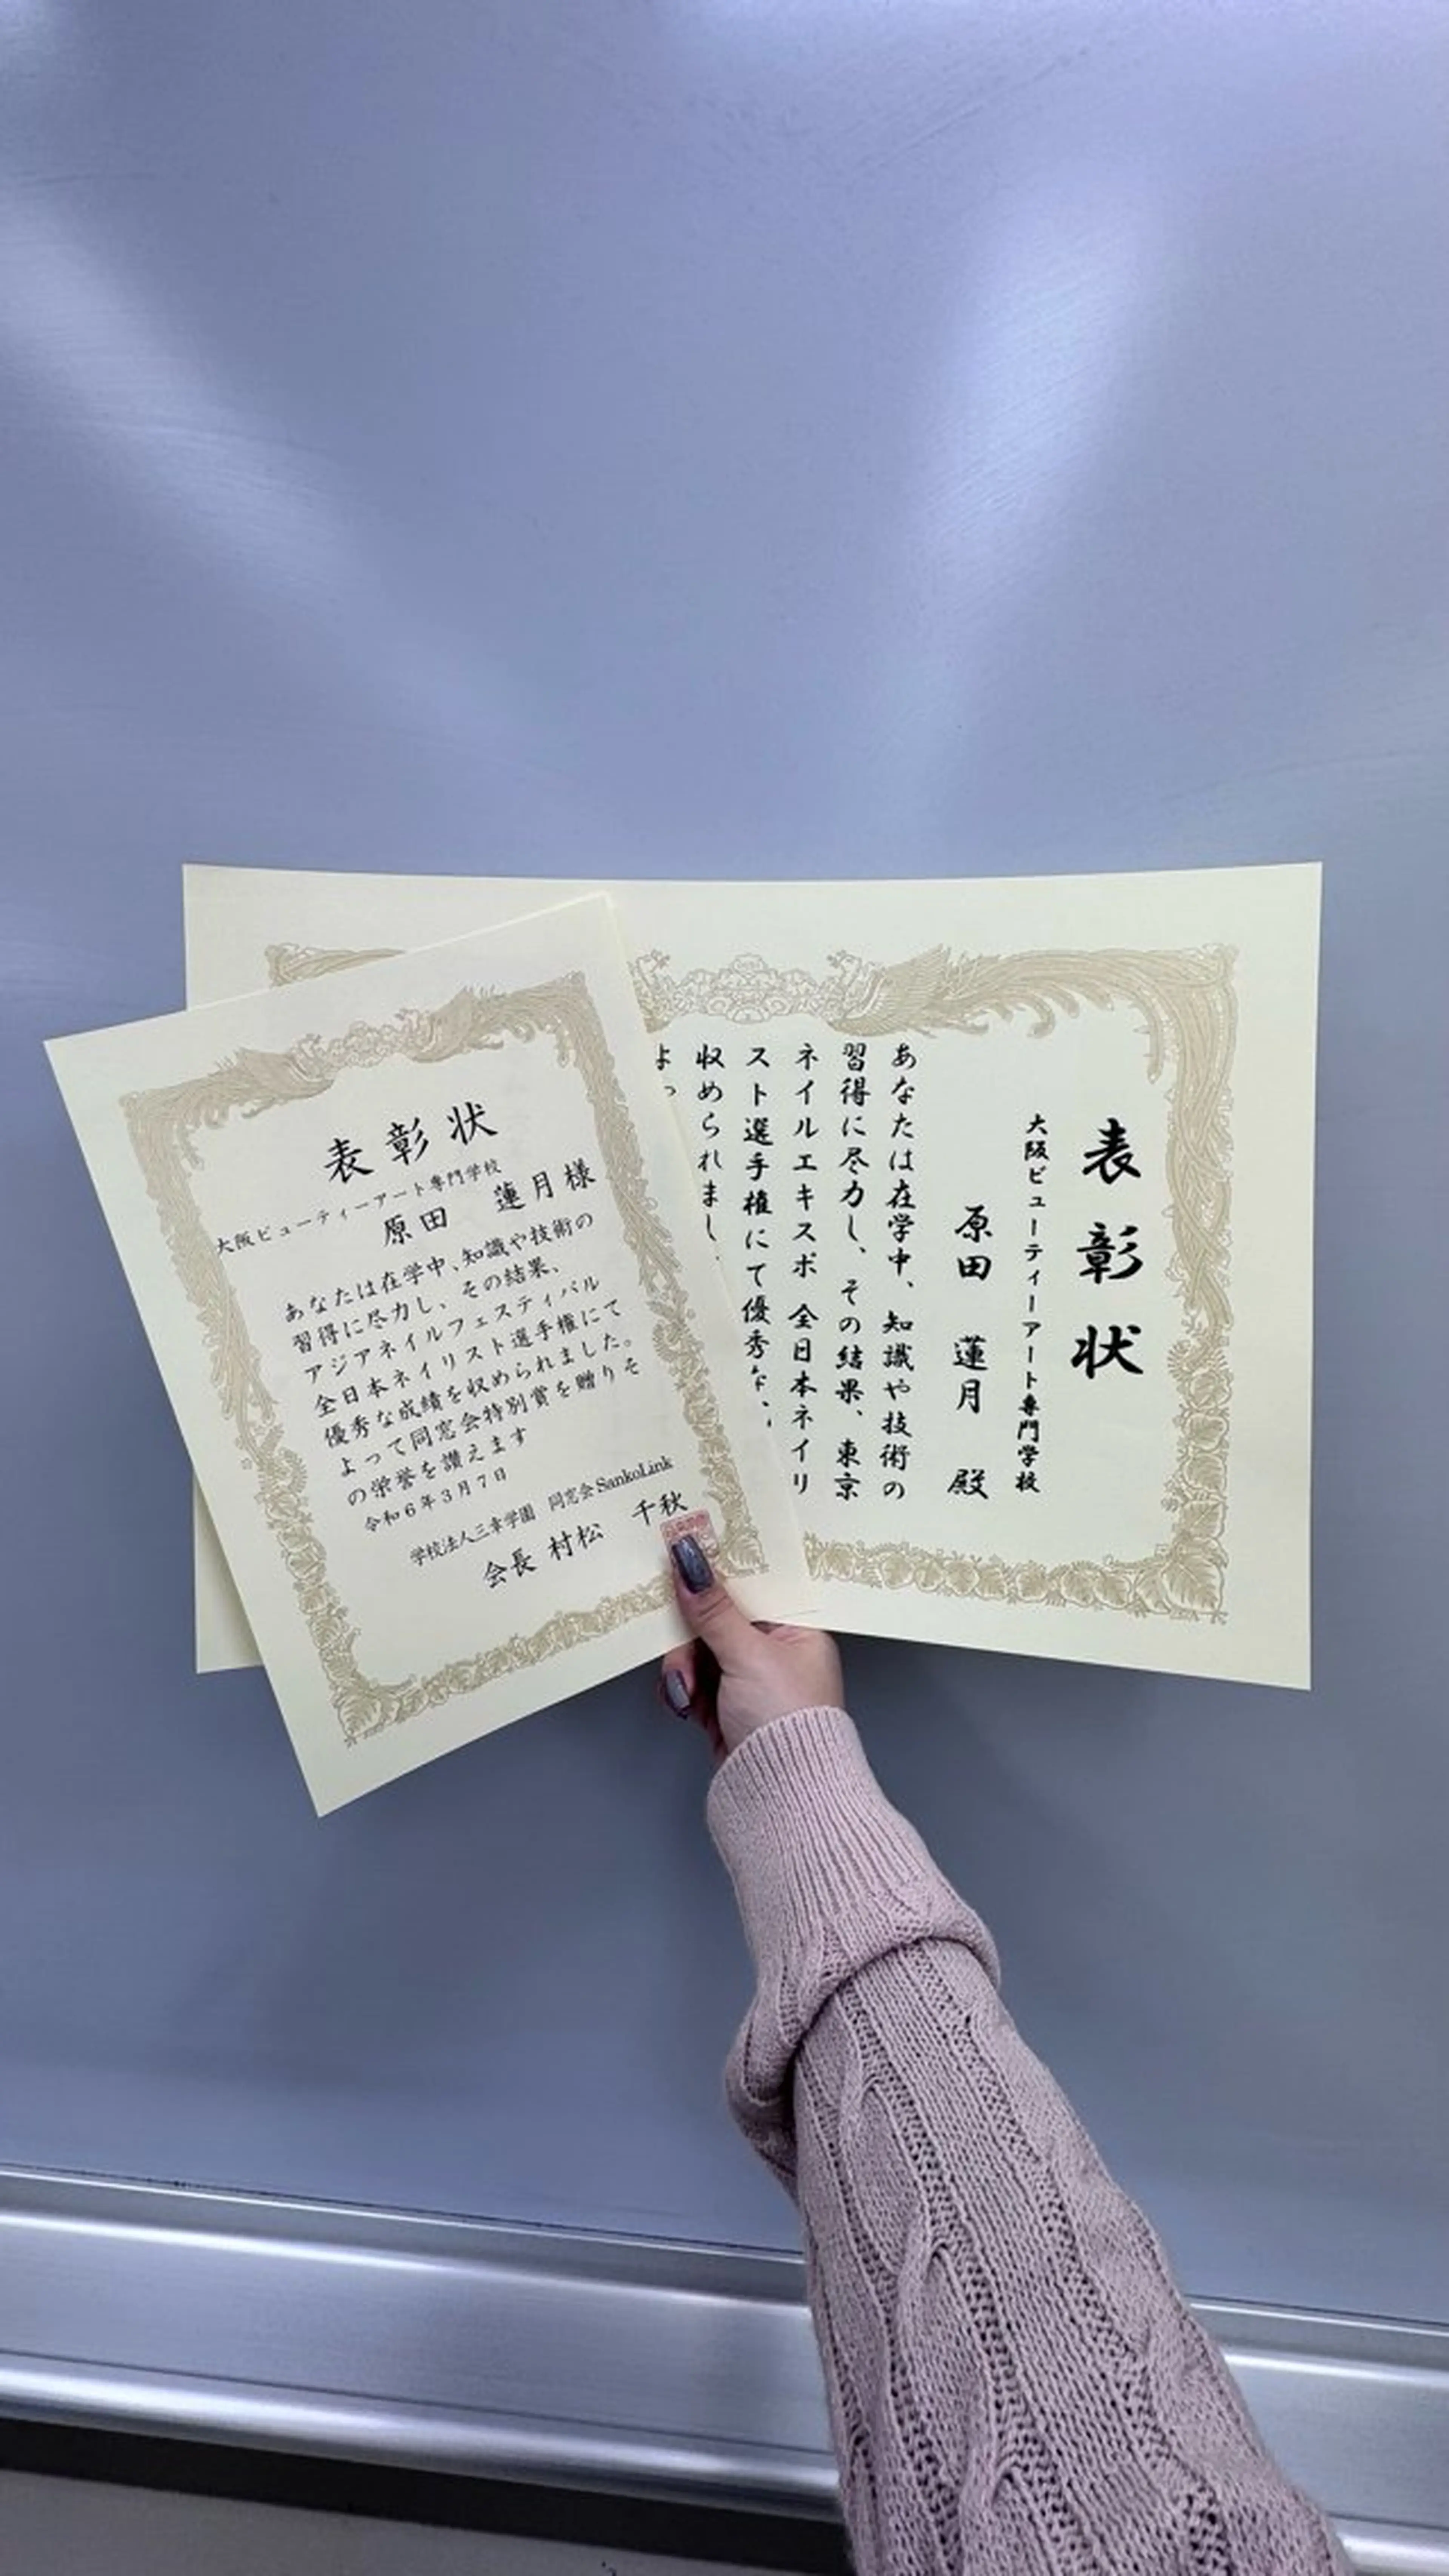 表彰状
大阪ビューティーアート専門学校
原田 蓮月様
あなたは在学中、知識や技術の
習得に尽力し、その結果、
アジアネイルフェスティバル
全日本ネイリスト選手権にて
優秀な成績を収められました。
よって同窓会特別賞を贈りそ
の栄誉を讃えます
令和6年3月7日
学校法人三幸学園 同窓会SankoLink
会長 村松 千秋
表彰状
大阪ビューティーアート専門学校
原田 蓮月 殿
あなたは在学中、知識や技術の
習得に尽力し、その結果、東京
ネイルエキスポ 全日本ネイリ
スト選手権にて優秀な
収められまし
よっ